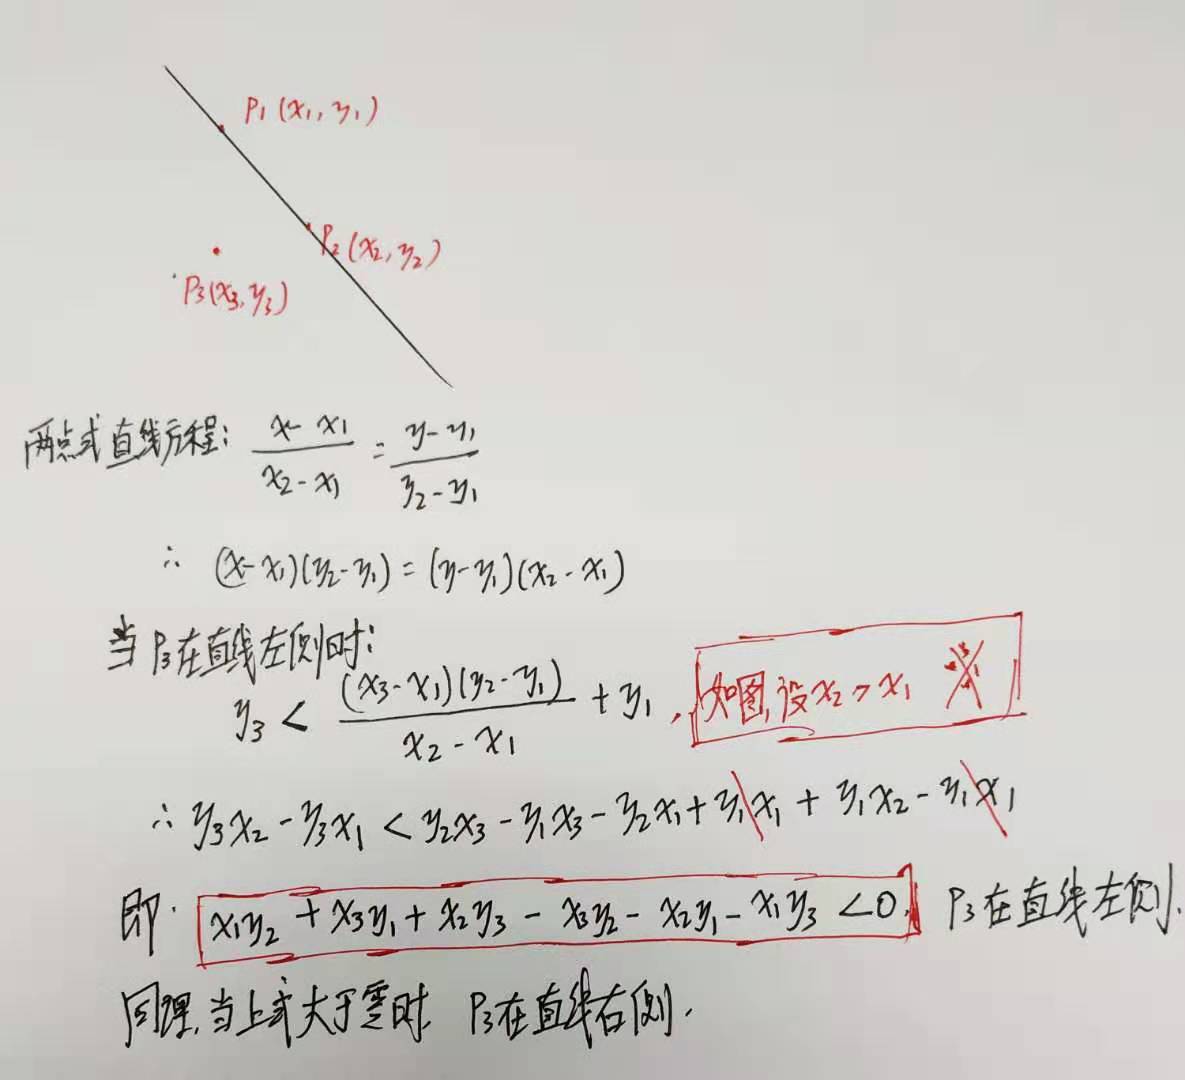 P₁(x₁, y₁)
P₂(x₂, y₂)
P₃(x₃, y₃)
两点式直线方程: (x - x₁)/(x₂ - x₁) = (y - y₁)/(y₂ - y₁)
∴ (x - x₁)(y₂ - y₁) = (y - y₁)(x₂ - x₁)
当P₃在直线左侧时:
y₃ < (x₃ - x₁)(y₂ - y₁)/(x₂ - x₁) + y₁, 如图,设x₂ > x₁
∴ y₃x₂ - y₃x₁ < y₂x₃ - y₁x₃ - y₂x₁ + y₁x₁ + y₁x₂ - y₁x₁
即: x₁y₂ + x₃y₁ + x₂y₃ - x₃y₂ - x₂y₁ - x₁y₃ < 0, P₃在直线左侧.
同理,当上式大于零时, P₃在直线右侧.